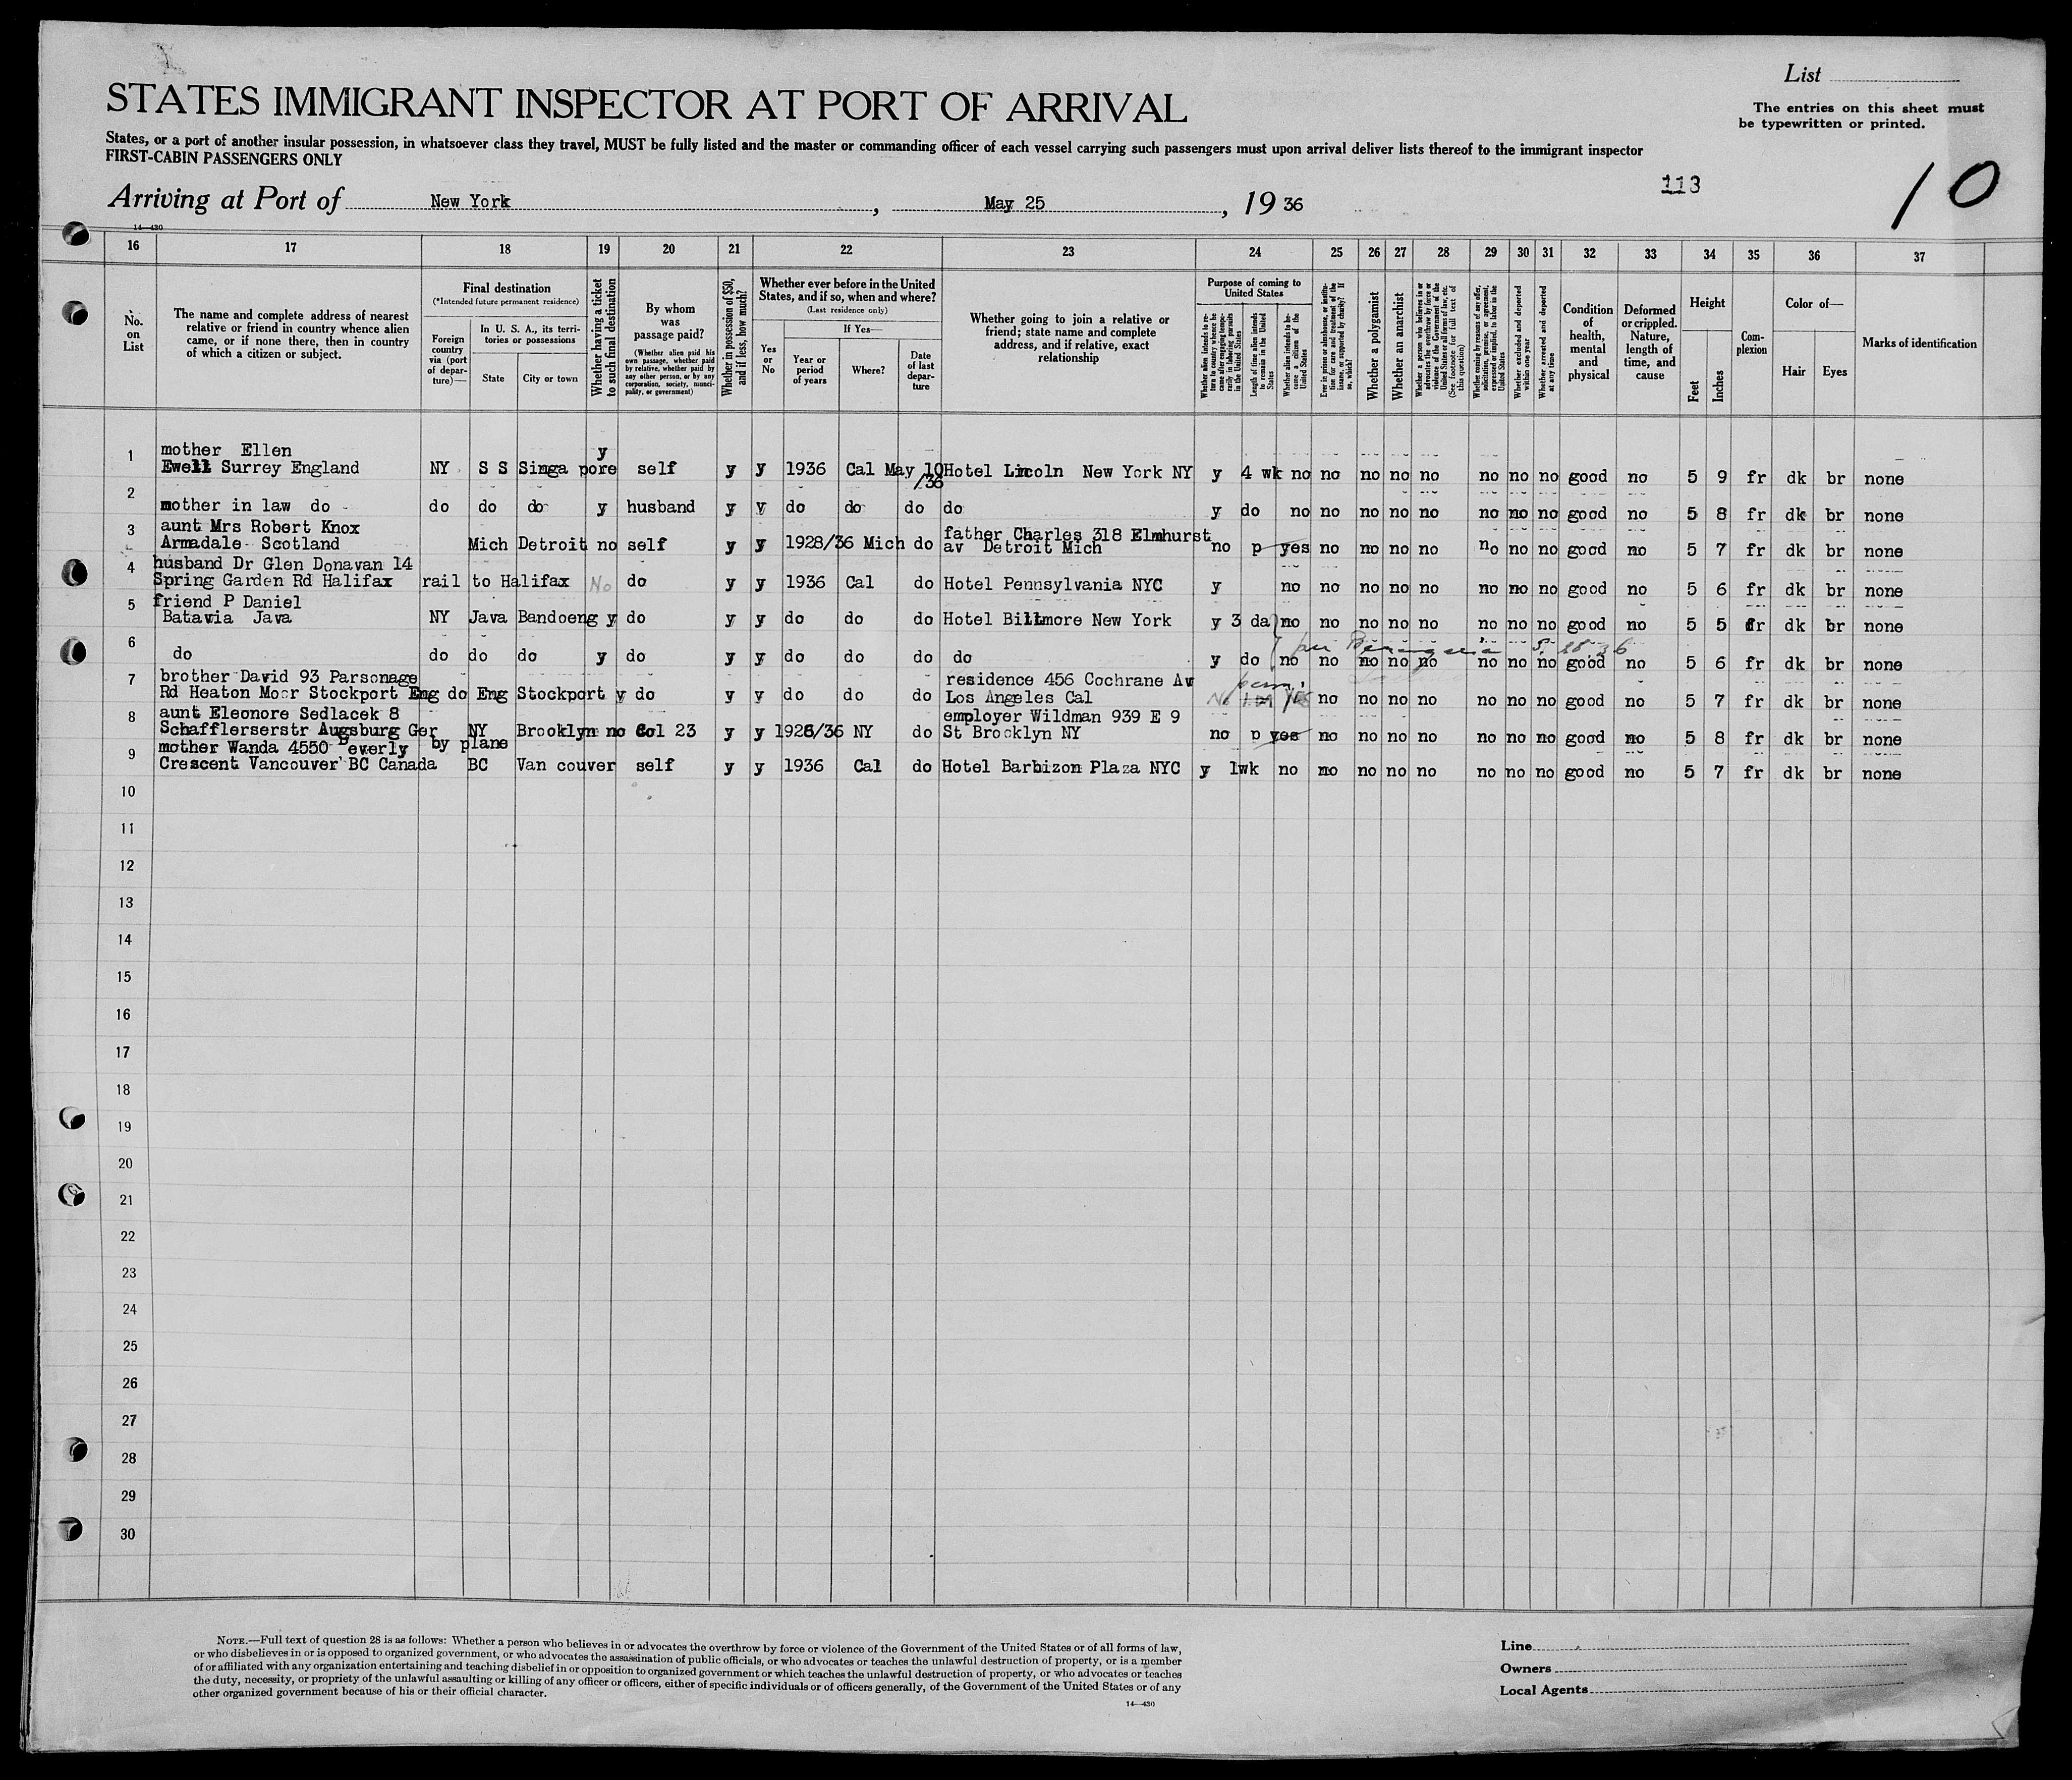 List
STATES IMMIGRANT INSPECTOR AT PORT OF ARRIVAL
The entries on this sheet must
be typewritten or printed.
States, or a port of another insular possession, in whatsoever class they travel, MUST be fully listed and the master or commanding officer of each vessel carrying such passengers must upon arrival deliver lists thereof to the immigrant inspector
FIRST-CABIN PASSENGERS ONLY
113
10
Arriving at Port of New York, May 25, 19 36
14—430
16 17 18 19 20 21 22 23 24 25 26 27 28 29 30 31 32 33 34 35 36 37
No. on List
The name and complete address of nearest
relative or friend in country whence alien
came, or if none there, then in country
of which a citizen or subject.
Final destination
(*Intended future permanent residence)
Foreign country via (port of departure)—
In U. S. A., its territories or possessions
State
City or town
Whether having a ticket to such final destination
By whom was passage paid?
(Whether alien paid his own passage, whether paid by relative, whether paid by any other person, or by any corporation, society, municipality, or government)
Whether in possession of $50, and if less, how much?
Whether ever before in the United
States, and if so, when and where?
(Last residence only)
Yes or No
If Yes—
Year or period of years
Where?
Date of last departure
Whether going to join a relative or
friend; state name and complete
address, and if relative, exact
relationship
Purpose of coming to United States
Whether alien intends to return to country whence he came after engaging temporarily in laboring pursuits in the United States
Length of time alien intends to remain in the United States
Whether alien intends to become a citizen of the United States
Ever in prison or almshouse, or institution for care and treatment of the insane, or supported by charity? If so, which?
Whether a polygamist
Whether an anarchist
Whether a person who believes in or advocates the overthrow by force or violence of the Government of the United States or all forms of law, etc. (See footnote for full text of this question)
Whether coming by reasons of any offer, solicitation, promise, or agreement, expressed or implied, to labor in the United States
Whether excluded and deported within one year
Whether arrested and deported at any time
Condition of health, mental and physical
Deformed or crippled. Nature, length of time, and cause
Height
Feet
Inches
Complexion
Color of—
Hair
Eyes
Marks of identification
1 mother Ellen
Ewell Surrey England NY S S Singa pore y self y y 1936 Cal May 10/36 Hotel Lincoln New York NY y 4 wk no no no no no no no no good no 5 9 fr dk br none
2 mother in law do do do do y husband y y do do do do y do no no no no no no no no good no 5 8 fr dk br none
3 aunt Mrs Robert Knox
Armadale Scotland Mich Detroit no self y y 1928/36 Mich do father Charles 318 Elmhurst
av Detroit Mich no p yes no no no no no no no good no 5 7 fr dk br none
4 husband Dr Glen Donavan 14
Spring Garden Rd Halifax rail to Halifax No do y y 1936 Cal do Hotel Pennsylvania NYC y no no no no no no no no good no 5 6 fr dk br none
5 friend P Daniel
Batavia Java NY Java Bandoeng y do y y do do do Hotel Biltmore New York y 3 da no no no no no no no no good no 5 5 fr dk br none
per Berengaria 5.28.36
6 do do do do y do y y do do do do y do no no no no no no no no good no 5 6 fr dk br none
7 brother David 93 Parsonage
Rd Heaton Moor Stockport Eng do Eng Stockport y do y y do do do residence 456 Cochrane Av
Los Angeles Cal No perm. Yes no no no no no no no good no 5 7 fr dk br none
8 aunt Eleonore Sedlacek 8
Schafflerserstr Augsburg Ger NY Brooklyn no Col 23 y y 1928/36 NY do employer Wildman 939 E 9
St Brooklyn NY no p yes no no no no no no no good no 5 8 fr dk br none
9 mother Wanda 4550 Beverly by plane
Crescent Vancouver BC Canada BC Van couver self y y 1936 Cal do Hotel Barbizon Plaza NYC y 1wk no no no no no no no no good no 5 7 fr dk br none
10
11
12
13
14
15
16
17
18
19
20
21
22
23
24
25
26
27
28
29
30
NOTE.—Full text of question 28 is as follows: Whether a person who believes in or advocates the overthrow by force or violence of the Government of the United States or of all forms of law,
or who disbelieves in or is opposed to organized government, or who advocates the assassination of public officials, or who advocates or teaches the unlawful destruction of property, or is a member
of or affiliated with any organization entertaining and teaching disbelief in or opposition to organized government or which teaches the unlawful destruction of property, or who advocates or teaches
the duty, necessity, or propriety of the unlawful assaulting or killing of any officer or officers, either of specific individuals or of officers generally, of the Government of the United States or of any
other organized government because of his or their official character.
14—430
Line
Owners
Local Agents